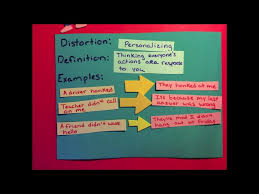 Distortion: Personalizing
Definition: Thinking everyone's
actions are a response
to you
Examples:
A driver honked
They honked at me
Teacher didn't call
on me
It's because my last
answer was wrong
A friend didn't wave
hello
They're mad I didn't
hang out on Friday